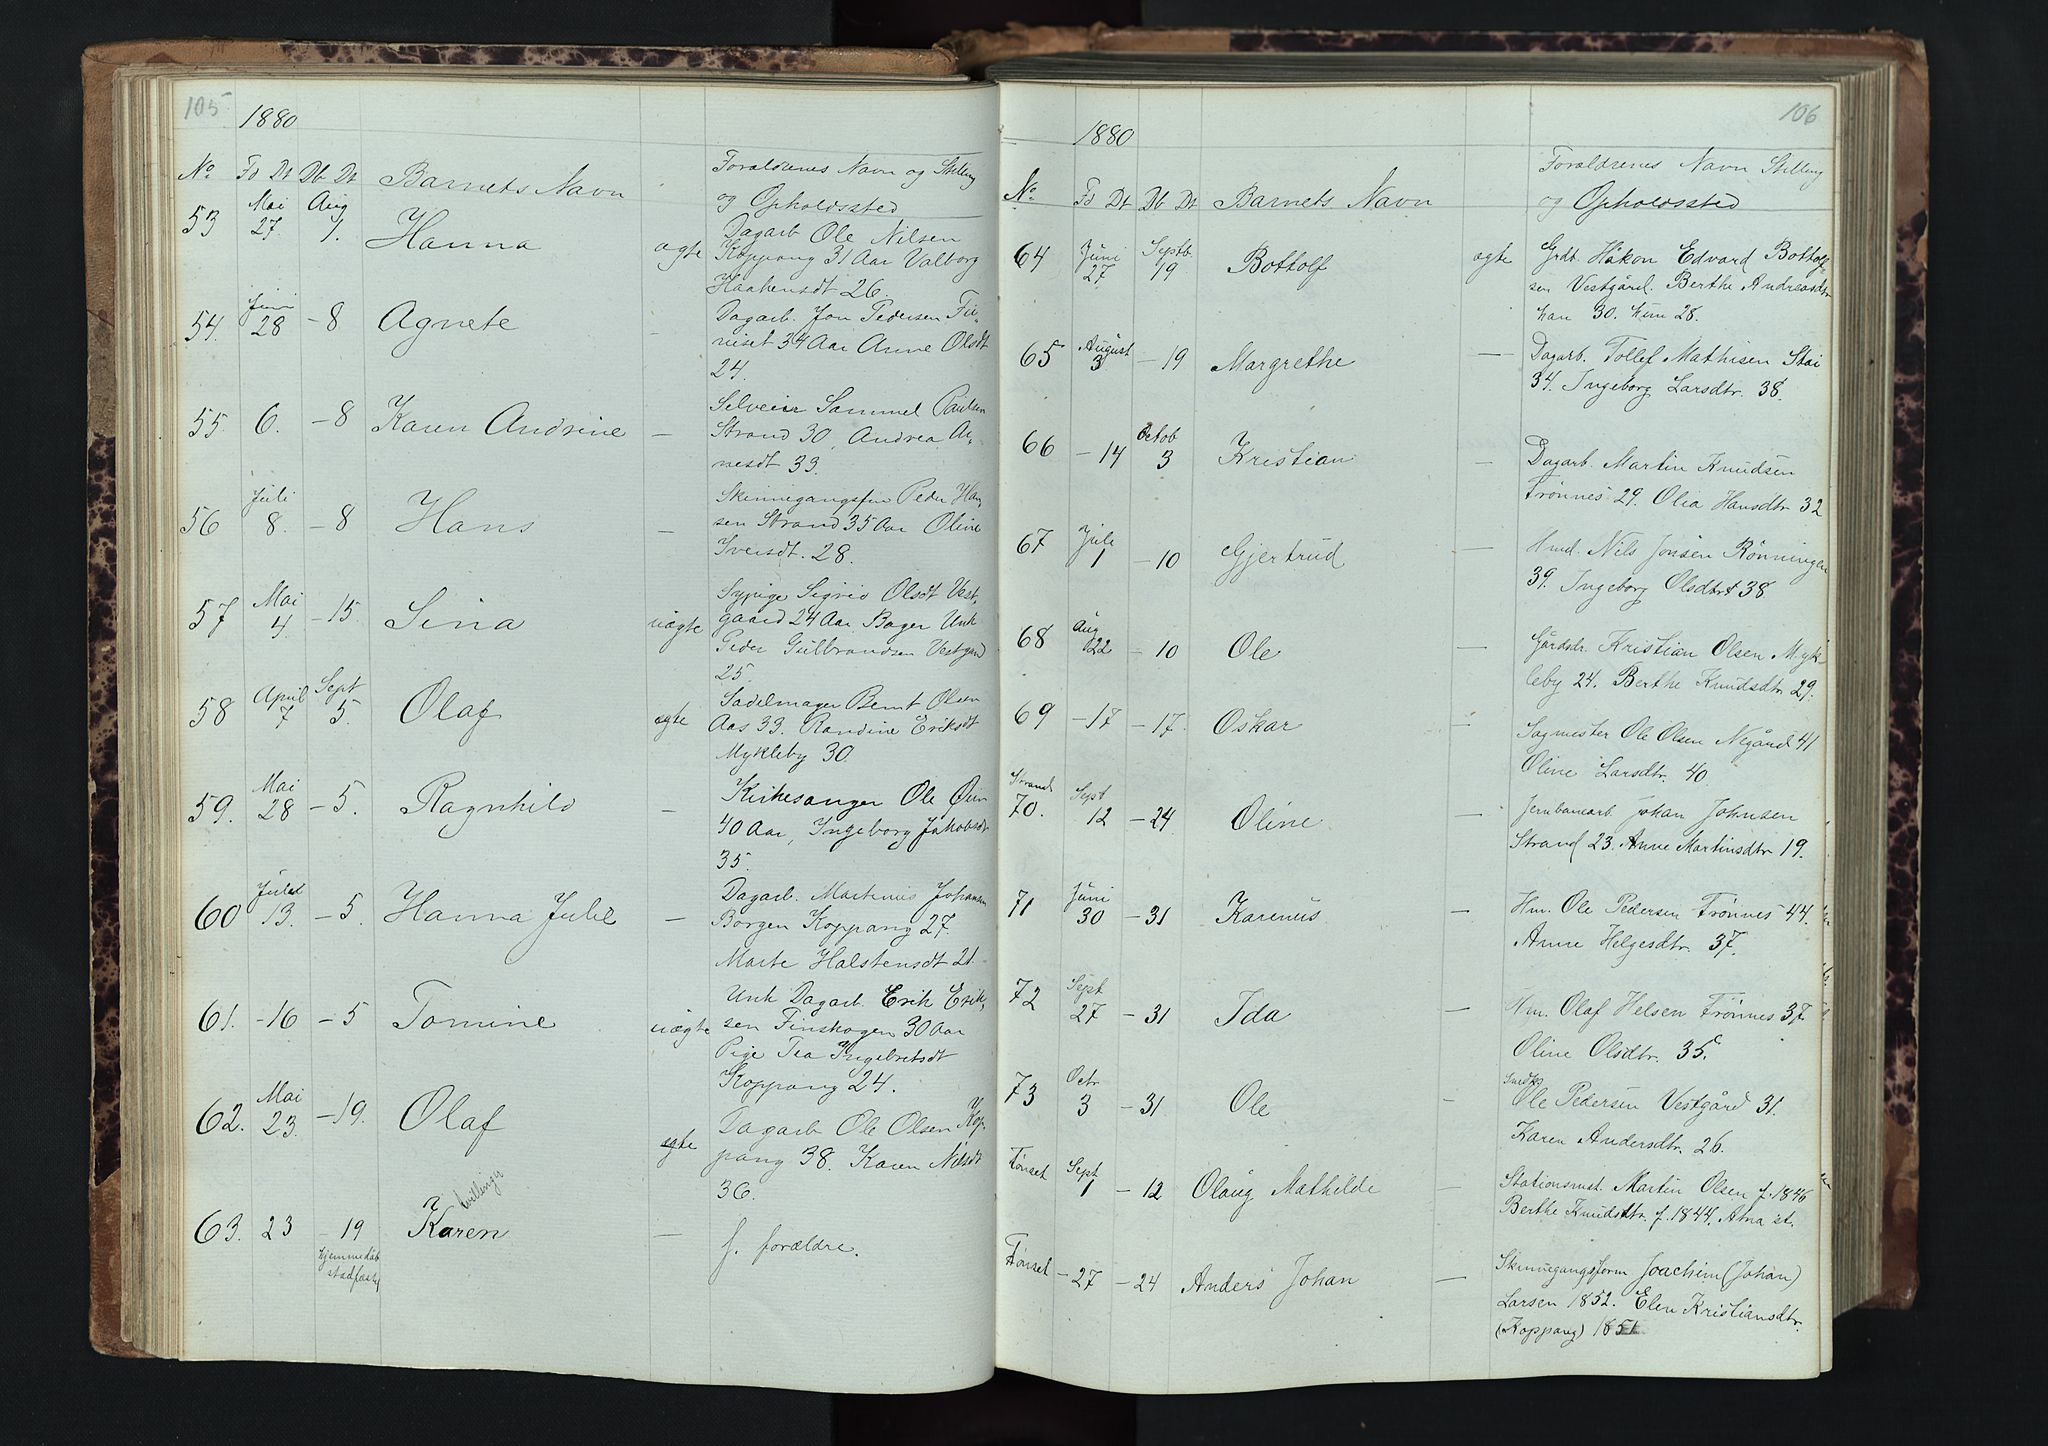 105
1880
No Fd Dt Db Dt Barnets Navn Forældrenes Navn og Stilling
og Opholdssted
53 Mai 27. Aug 1. Hanna ægte Dagarb Ole Nilsen
Koppang 31 Aar Valborg
Haakensdt 26.
54. Juni 28 – 8 Agnete – Dagarb. Jon Pedersen
34 Aar Anne Olsdt
24.
55 6. – 8 Karen Andrine – Selveier Sammel Paulsen
Strand 30, Andrea Ar-
nesdt 33.
56 Juli 8. – 8 Hans – Skinnegangsfm Peder Han
sen Strand 35 Aar Oline
Iversdt. 28.
57 Mai 4. – 15. Sina uægte Sypige Sigrid Olsdt Vest,
gaard 24 Aar. Bager Unk
Peder Gulbrandsen Vestgard
25.
58 April 7 Sept 5. Olaf ægte Sadelmager Bernt Olsen
Aas 33. Randine Eriksdt
Mykleby 30.
59. Mai 28 – 5. Ragnhild – Kirkesanger Ole Øien
40 Aar, Ingeborg Jakobsdt
35.
60 Juli 13. – 5. Hanna Julie – Dagarb. Martinus Johansen
Borgen Koppang 27.
Marte Halstensdt 21.
61. – 16 – 5 Tomine uægte Unk Dagarb. Erik Erik,
sen Finskogen 30 Aar
Pige Tea Ingebretsdt
Koppang 24.
62. Mai 23. – 19. Olaf ægte Dagarb Ole Olsen Kop,
pang 38. Karen Nilsdt
36.
tvillinger
63. 23 – 19 Karen – f. forældre.
hjemmedåb
stadfæstet
106
1880
No Fd Dt Db Dt Barnets Navn Forældrenes Navn Stilling
og Opholdssted
64 Juni 27 Septb. 19 Bottolf ægte Grdb. Håkon Edvard Bottolf-
sen Vestgård. Berthe Andreasdtr
han 30. hun 28.
65 August 3 – 19 Margrethe – Dagarb. Tollef Mathisen Stai
34. Ingeborg Larsdtr. 38.
66 – 14 Octob 3 Kristian – Dagarb. Martin Knudsen
Trønnes 29. Olia Hansdtr 32
67 Juli 1 – 10 Gjertrud – Hmd. Nils Jonsen Rønningen
39. Ingeborg Olsdtr 38
68 Aug 22 – 10 Ole – Gårdsdr. Kristian Olsen Myk-
leby 24. Berthe Knudsdtr 29.
69 – 17 – 17. Oskar – Sagmester Ole Olsen Negård 41
Oline Larsdtr. 40.
Strand
70. Sept 12 – 24 Oline – Jernbanearb. Johan Johnsen
Strand 23. Anne Martinsdtr 19.
71 Juni 30 – 31 Karenus – Hm. Ole Pedersen Trønnes 44.
Anne Helgesdtr. 37.
72 Sept 27 – 31 Ida – Hm. Olaf Helsen Trønnes 37
Oline Olsdtr. 35.
73 Octr 3 – 31 Ole – Ole Pedersen Vestgård 31.
Karen Andersdtr. 26.
Tønset Sept 1 – 12 Olaug Mathilde – Stationsmst. Martin Olsen f. 1846
Berthe Knudsdtr. f. 1844. Atna st.
Tønset – 27 – 24 Anders Johan – Skinnegangsform Joachim (Johan)
Larsen 1852. Elen Kristiansdtr.
(Koppang) 1851